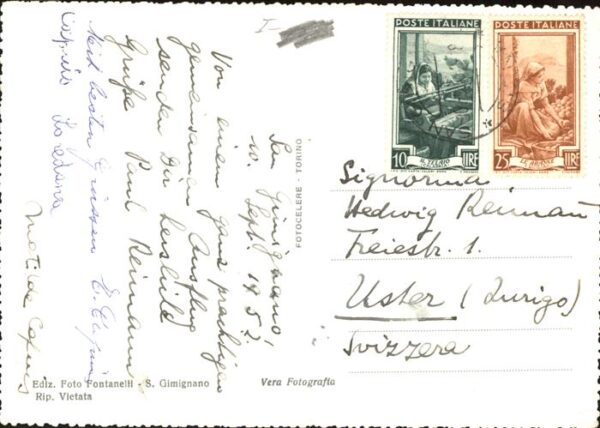 I
San Gimignano,
10. Sept. 1952.
Von einem ganz prächtigen
gemeinsamen Ausflug
senden Dir herzlich
Grüße Paul Reimann
Mit besten Grüssen E.
Loredana
Matilde
Ediz. Foto Fontanelli - S. Gimignano
Rip. Vietata
Vera Fotografia
FOTOCELERE - TORINO
POSTE ITALIANE
10 IL TELAIO LIRE
POSTE ITALIANE
25 LE ARANCE LIRE
Signorina
Hedwig Reimann
Freiestr. 1.
Uster (Zurigo)
Svizzera